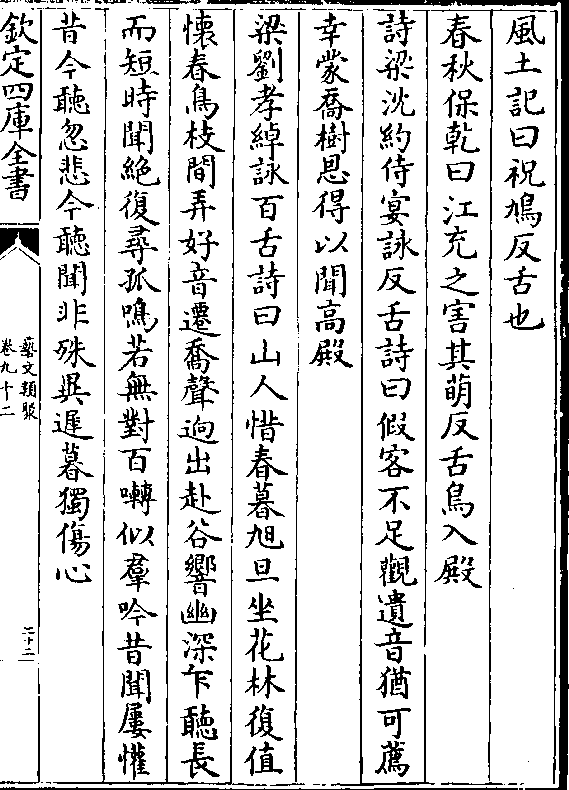 風土記曰祝鳩反舌也
春秋保乾曰江充之害其萌反舌鳥入殿
詩梁沈約侍宴詠反舌詩曰假客不足觀遺音猶可薦
幸蒙喬樹恩得以聞高殿
梁劉孝綽詠百舌詩曰山人惜春暮旭旦坐花林復值
懷春鳥枝間弄好音遷喬聲逈出赴谷響幽深乍聽長
而短時聞絕復尋孤鳴若無對百囀似羣吟昔聞屢懽
昔今聽忽悲今聽聞非殊異遲暮獨傷心
欽定四庫全書
藝文類聚
卷九十二
二十二